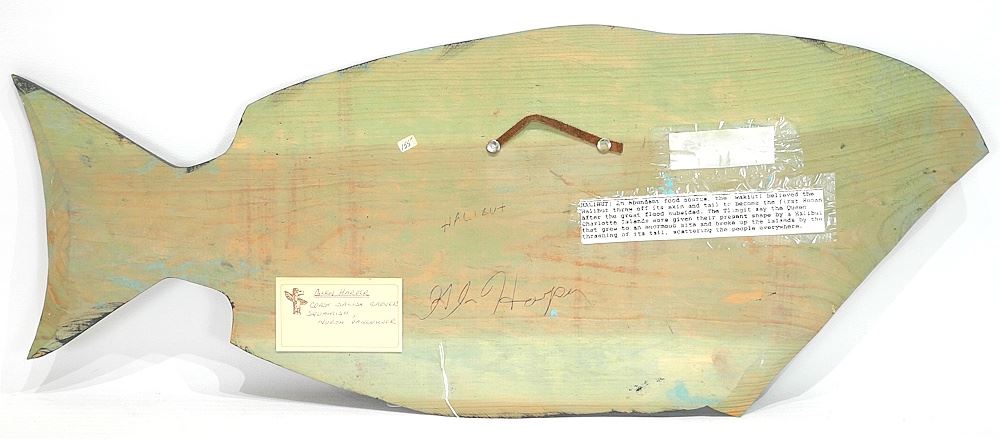 155
HALIBUT: An abundant food source, the Wakiutl believed the
Halibut threw off its skin and tail to become the first Human
after the great flood subsided. The Tlingit say the Queen
Charlotte Islands were given their present shape by a Halibut
that grew to an enormous size and broke up the islands by the
thrashing of its tail, scattering the people everywhere.
HALIBUT
Harper
HARPER
COAST SALISH CARVER
SQUAMISH,
NORTH VANCOUVER